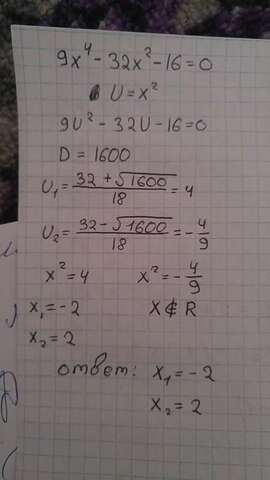 9x⁴ - 32x² - 16 = 0
U = x²
9U² - 32U - 16 = 0
D = 1600
U₁ = (32 + √1600)/18 = 4
U₂ = (32 - √1600)/18 = -4/9
x² = 4 x² = -4/9
x₁ = -2 x ∉ R
x₂ = 2
ответ: x₁ = -2
x₂ = 2